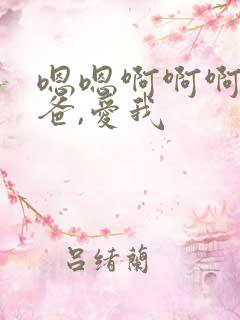 嗯嗯啊啊啊
爸,愛我
吕绪蘭